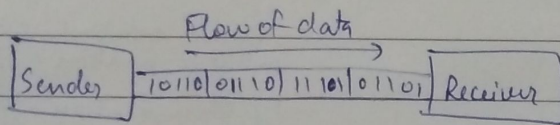 Flow of data
Sender 10110|01110|11101|01101 Receiver